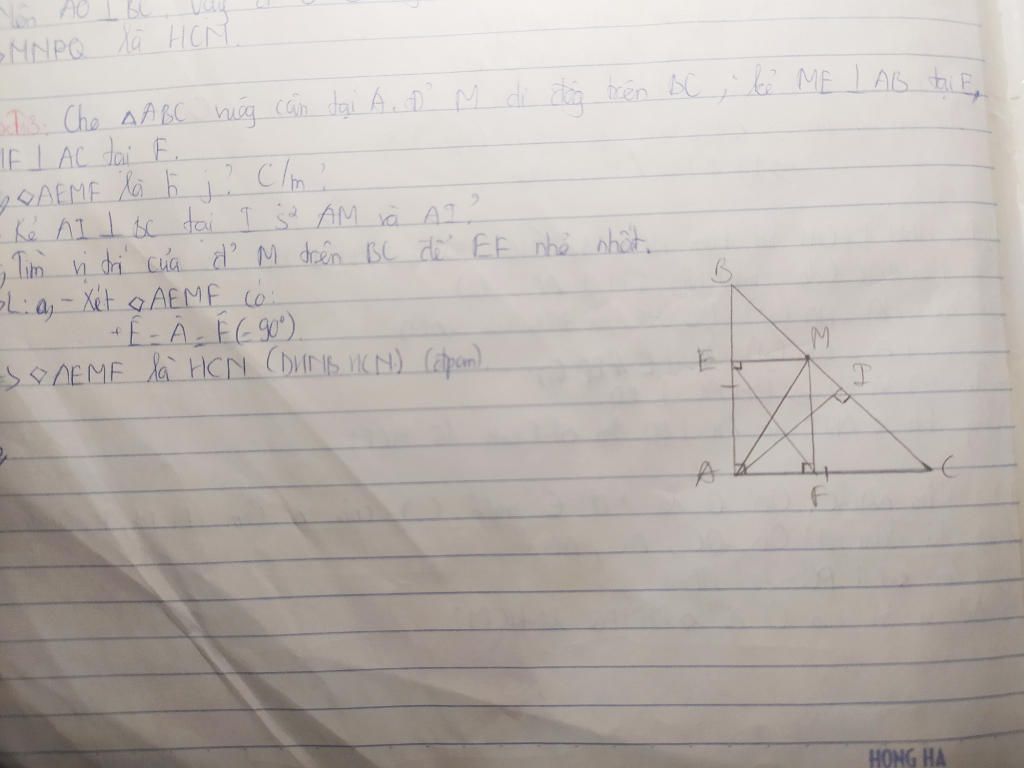 Nên AO ⊥ BC
MNPQ là HCN.
BT3: Cho △ABC vuôg cân tại A. Đ' M di độg trên BC ; kẻ ME ⊥ AB tại E,
MF ⊥ AC tại F.
▱AEMF là h j? C/m?
Kẻ AI ⊥ BC tại I s² AM và AI?
Tìm vị trí của đ' M trên BC để EF nhỏ nhất.
a, - Xét ▱AEMF có:
+ Ê = Â = F̂ (= 90°)
=> ▱AEMF là HCN (DHNB HCN) (đpcm)
B
M
E
I
A
C
F
HONG HA